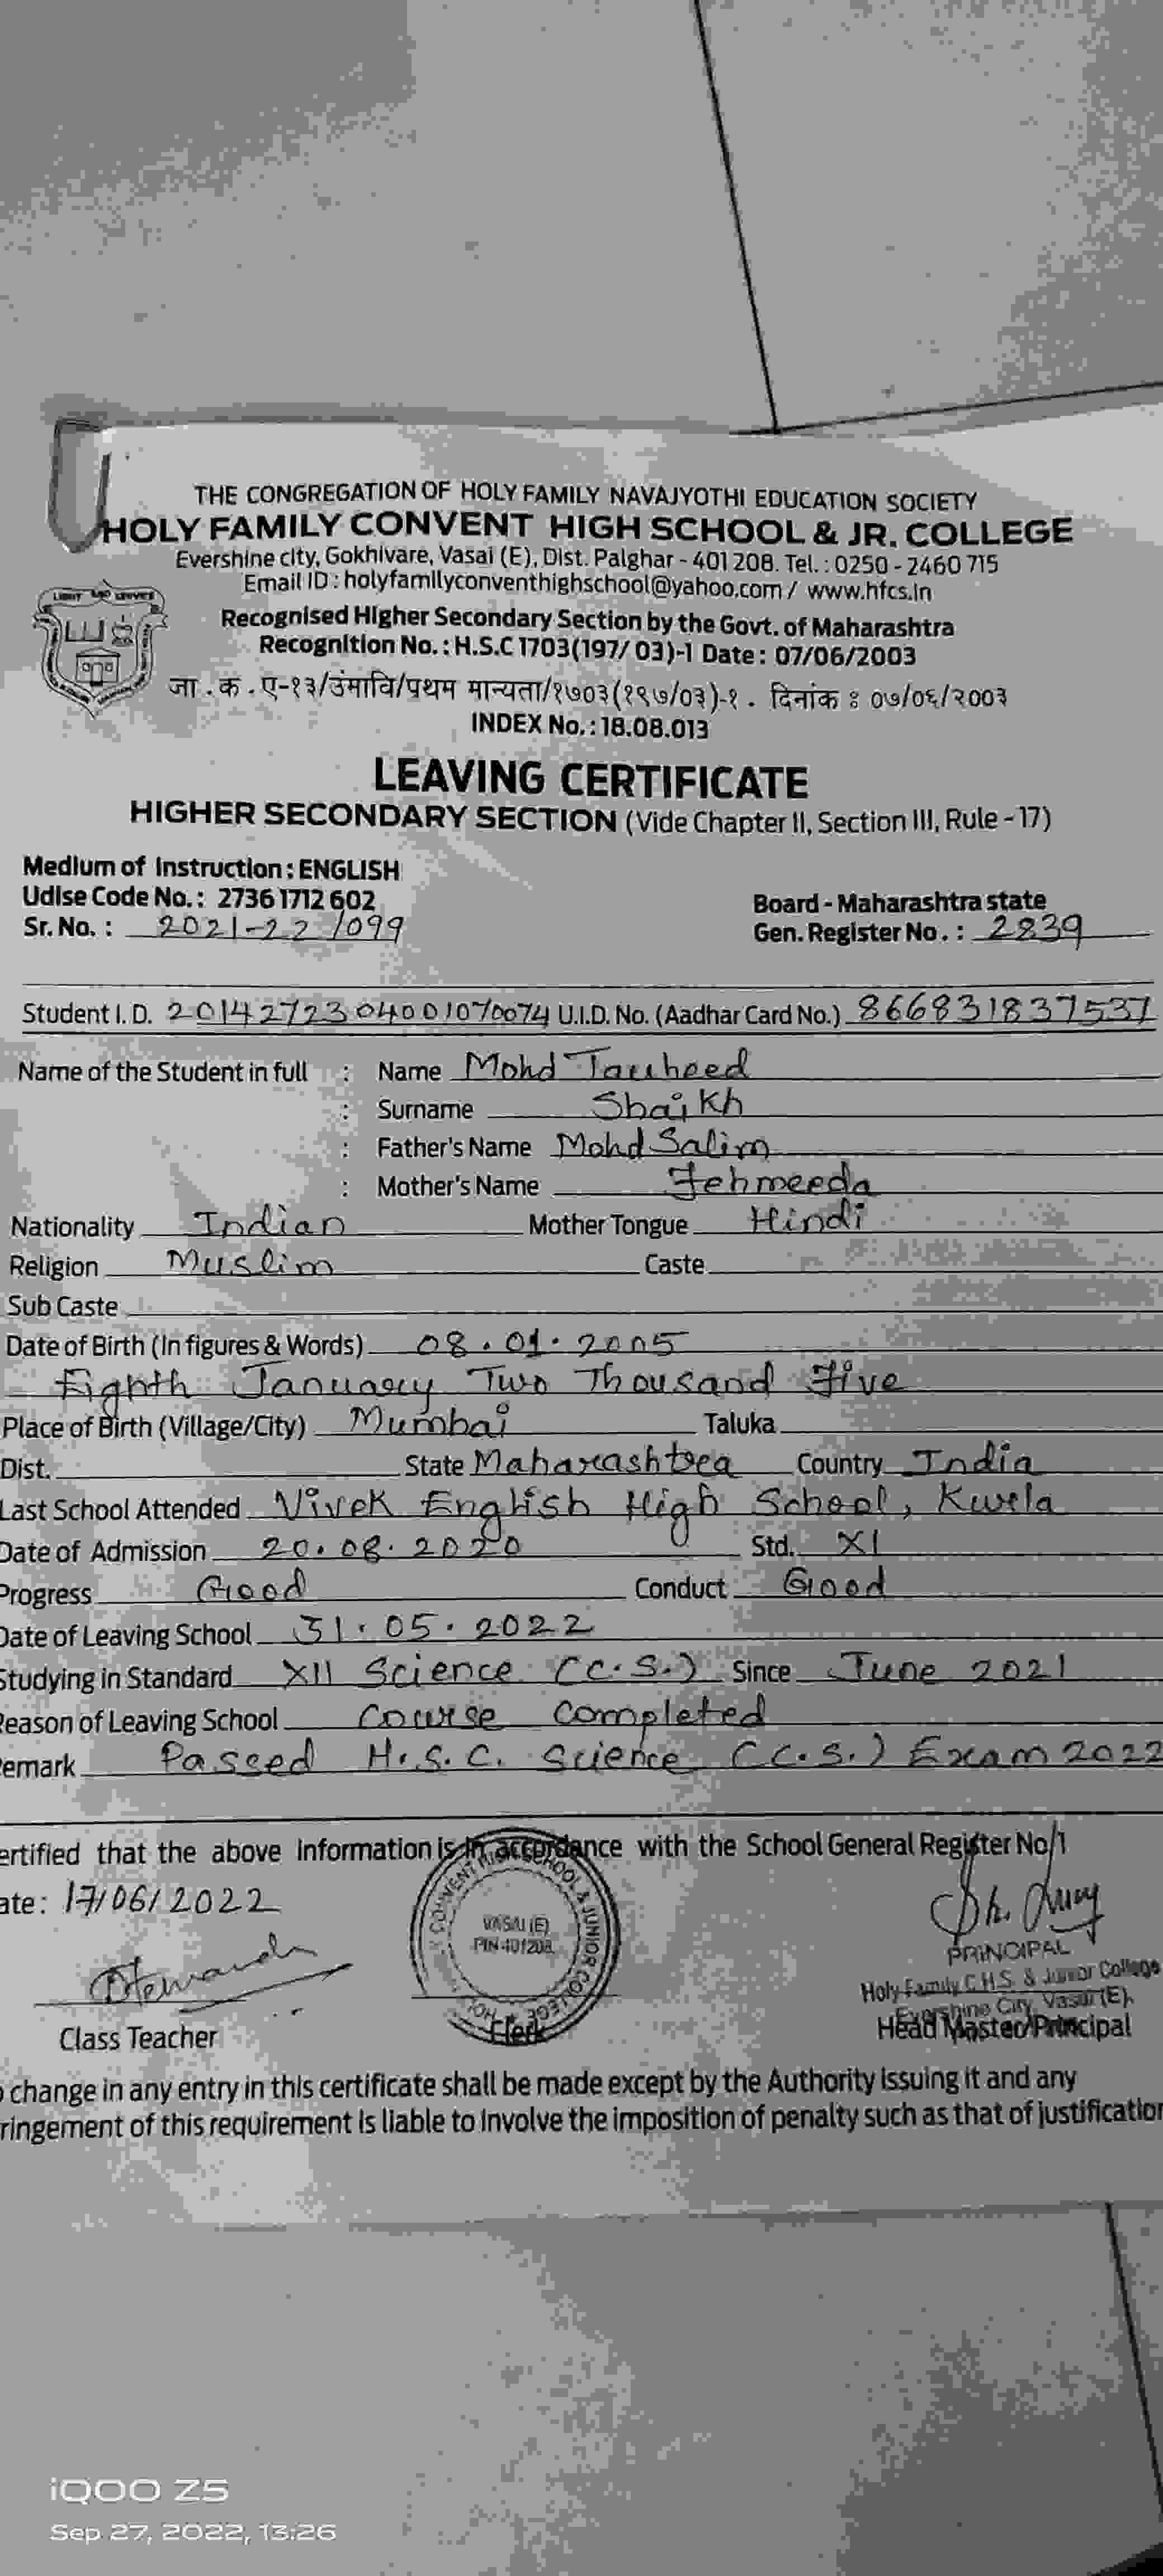 THE CONGREGATION OF HOLY FAMILY NAVAJYOTHI EDUCATION SOCIETY
HOLY FAMILY CONVENT HIGH SCHOOL & JR. COLLEGE
Evershine city, Gokhivare, Vasai (E), Dist. Palghar - 401 208. Tel. : 0250 - 2460 715
Email ID : holyfamilyconventhighschool@yahoo.com / www.hfcs.in
Recognised Higher Secondary Section by the Govt. of Maharashtra
Recognition No. : H.S.C 1703(197/ 03)-1 Date : 07/06/2003
जा . क . ए-१३/उंमावि/पथम मान्यता/१७०३(१९७/०३)-१ . दिनांक : ०७/०६/२००३
INDEX No. : 18.08.013
LEAVING CERTIFICATE
HIGHER SECONDARY SECTION (Vide Chapter II, Section III, Rule - 17)
Medium of Instruction : ENGLISH
Udise Code No. : 2736 1712 602 Board - Maharashtra state
Sr. No. : 2021-22/099 Gen. Register No. : 2839
Student I. D. 2014272304001070074 U.I.D. No. (Aadhar Card No.) 866831837537
Name of the Student in full : Name Mohd Tauheed
: Surname Shaikh
: Father's Name Mohd Salim
: Mother's Name Fehmeeda
Nationality Indian Mother Tongue Hindi
Religion Muslim Caste
Sub Caste
Date of Birth (In figures & Words) 08.01.2005
Eighth January Two Thousand Five
Place of Birth (Village/City) Mumbai Taluka
Dist. State Maharashtra Country India
Last School Attended Vivek English High School, Kurla
Date of Admission 20.08.2020 Std. XI
Progress Good Conduct Good
Date of Leaving School 31.05.2022
Studying in Standard XII Science (C.S.) Since June 2021
eason of Leaving School Course Completed
emark Passed H.S.C. Science (C.S.) Exam 2022
ertified that the above Information is in accordance with the School General Register No/1
ate : 17/06/2022
VASAI (E)
PIN-401208.
PRINCIPAL
Holy Family C.H.S. & Junior College
Evershine City, Vasai (E).
Class Teacher Clerk Head Master/Principal
change in any entry in this certificate shall be made except by the Authority issuing it and any
ringement of this requirement is liable to involve the imposition of penalty such as that of justification
iQOO Z5
Sep 27, 2022, 13:26